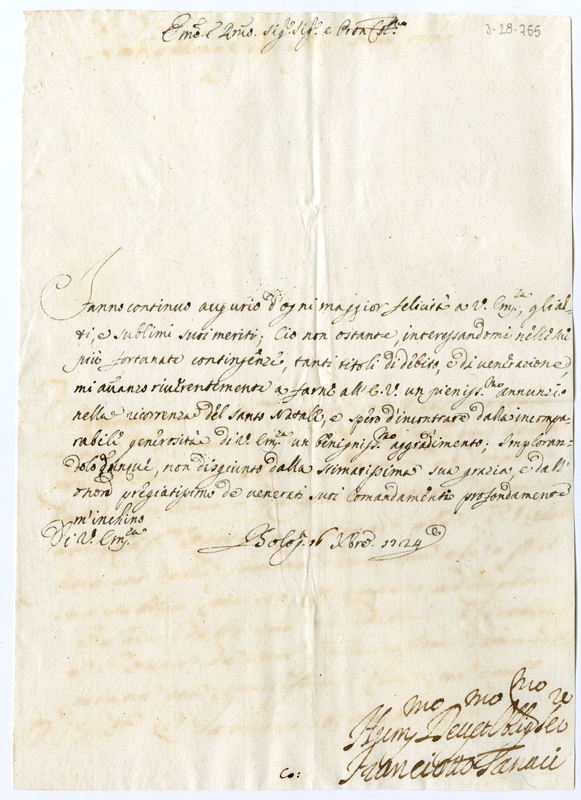 3-28-755
Emo. e Rmo. Sigr. Sigr. e Pron Colmo
Fanno continuo augurio d'ogni maggior felicità a V. Emza. gli al-
ti, e sublimi suoi meriti; Ciò non ostante, interessandomi nelle di lei
più fortunate contingenze, tanti titoli di debito, e di venerazione
mi avanzo riverentemente a farne all'E.V. un pienissmo annuncio
nella ricorrenza del Santo Natale, e spero d'incontrare dalla incompa-
rabile generosità di V. Emza un benignissmo aggradimento; Imploran-
dolo dunque, non disgiunto dalla stimatissima sua grazia, e dall'
onore pregiatissimo de venerati suoi Comandamenti profondamente
m'inchino
Di V. Emza
Bologa. 16 Xbre. 1724
Humo Devmo Obligmo Sre
Franciotto Tanari
Co: